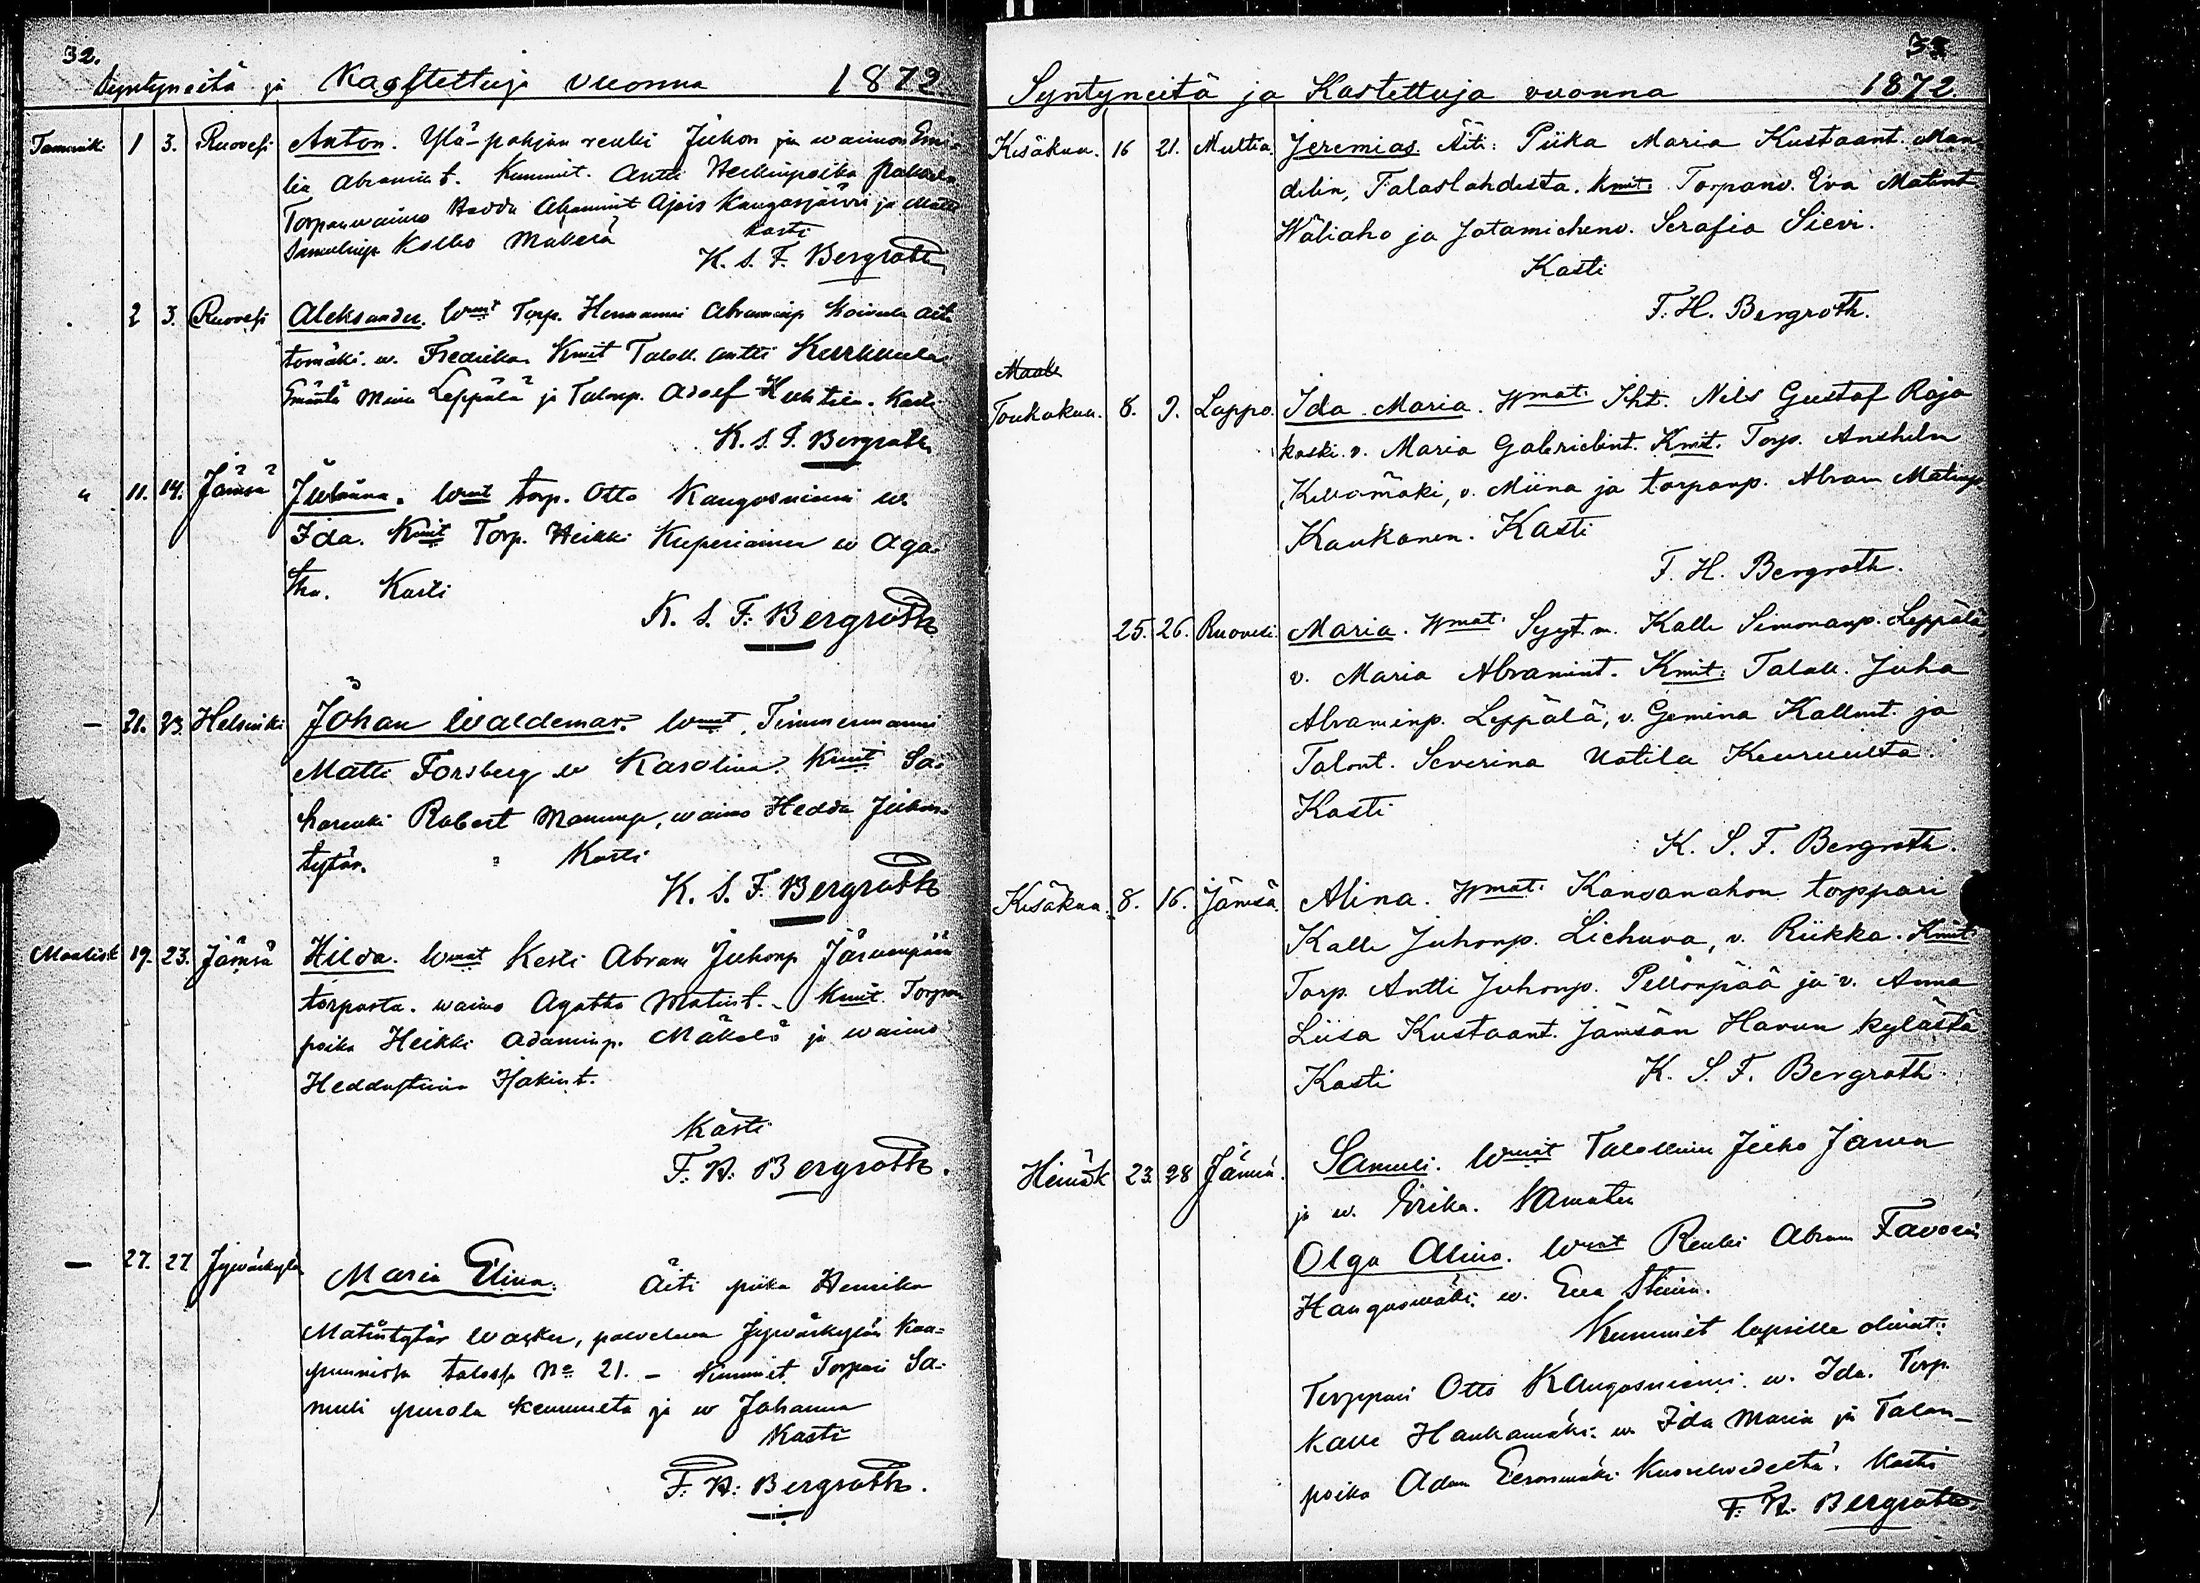 32.
Syntyneitä ja Kastettuja vuonna 1872
Tammik 1 3. Ruovesi Anton. Ylä-pohjan renki Juhon ja waimon Emi-
lia Abramint. Kummit. Antti Heikinpoika
Torpanwaimo Hedda Abramint Ajois Kangasjärvi ja Matti
Samulinp Kolho Mäkelä Kasti
K. S. F. Bergroth
2 3. Ruovesi Aleksander. Wmt Torp. Hermanni Abraminp Koivula
tomäki. w. Fredrika Kmit Taloll. Antti
Emäntä Leppälä ja Talonp. Adolf Huhtila. Kasti
K. S. F. Bergroth
" 11. 14. Jämsä Juliäna. Wmt torp. Otto Kangosniemi w.
Ida. Kmit Torp. Heikki w Aga-
tha. Kasti
K. S. F. Bergroth
— 21. 23. Helsinki Johan Waldemar. Wmt. Timmermanni
Matti Forsberg w Karolina. Kmit Sa-
harenki Robert Mananp, waimo Hedda Juhon-
tytär. Kasti
K. S. F. Bergroth
Maalisk 19. 23. Jämsä Hilda. Wmt Kesti Abram Juhonp Järvenpään
torpasta. waimo Agatha Matint. Kmit. Torpan
poika Heikki Adaminp. Mäkelä ja waimo
Heddastiina Isakint.
Kasti
F. H. Bergroth.
— 27. 27 Jyväskylä Maria Elina. Äiti piika Henrika
Matintytär Wacker, palveleva Jyväskylän Kau-
punnissa talossa No 21. - Kummit Torpari Sa-
muli Purola Keuruulta ja w Johanna
Kasti
F. H. Bergroth.
Syntyneitä ja Kastettuja vuonna 1872.
Kesäkuu. 16 21. Multia. Jeremias. Äiti: Piika Maria Kustaant. Man-
delin, Talaslahdesta. Kmit: Torpanv. Eva Matint
Wäliaho ja Jatamichenv. Serafia Sievi.
Kasti
F. H. Bergroth.
Maalis
Toukokuu. 8. 9. Lappo. Ida Maria. Wmat. Iht. Nils Gustaf Raja-
koski. v. Maria Gabrielint. Kmit. Torp. Anshelm
Kellomäki, v. Miina ja torpanp. Abram Matinp
Kaukonen. Kasti
F. H. Bergroth.
25. 26. Ruovesi. Maria. Wmat. Syyt. m. Kalle Simonanp. Leppälä,
v. Maria Abramint. Kmit: Taloll. Juha
Abraminp. Leppälä, v. Gemina Kallent. ja
Talont. Severina Uotila Keuruulta.
Kasti
K. S. F. Bergroth.
Kesäkuu. 8. 16. Jämsä. Alina. Wmat. Kansanahon torppari
Kalle Juhonp. Liehuva, v. Riikka. Kmit.
Torp. Antti Juhonp. Pellonpää ja v. Anna
Liisa Kustaant. Jämsän Havun kylästä
Kasti K. S. F. Bergroth.
Heinäk 23. 28 Jämsä. Samuli. Wmat Talollinen Juho Jarva
ja w. Erika.
Olga Alina. Wmat Renki Abram Favorin
Hangasmäki w. Eva Stiina.
Kummit lapsille olivat:
Torppari Otto Kangosniemi. w. Ida. Torp.
Kalle Hauhamäki w Ida Maria ja Talon-
poika Adam Eerosmäki Kuorehvedeltä. Kasti
F. H. Bergroth.